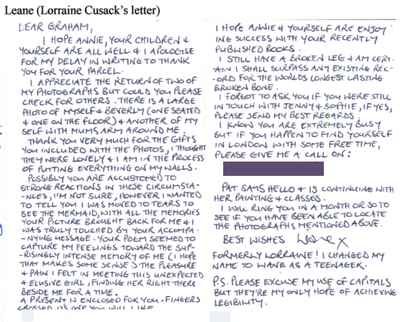 Leane (Lorraine Cusack's letter)
DEAR GRAHAM,
I HOPE ANNIE, YOUR CHILDREN &
YOURSELF ARE ALL WELL & I APOLOGISE
FOR MY DELAY IN WRITING TO THANK
YOU FOR YOUR PARCEL.
I APPRECIATE THE RETURN OF TWO OF
MY PHOTOGRAPHS BUT COULD YOU PLEASE
CHECK FOR OTHERS. THERE IS A LARGE
PHOTO OF MYSELF & BEVERLY (ONE SEATED
& ONE ON THE FLOOR) & ANOTHER OF MY
SELF WITH MUMS ARM AROUND ME.
THANK YOU VERY MUCH FOR THE GIFTS
YOU INCLUDED WITH THE PHOTOS, I THOUGHT
THEY WERE LOVELY & I AM IN THE PROCESS
OF PUTTING EVERYTHING ON MY WALLS.
POSSIBLY YOU ARE ACCUSTOMED TO
STRONG REACTIONS IN THESE CIRCUMSTA-
NCES, I'M NOT SURE, HOWEVER I WANTED
TO TELL YOU I WAS MOVED TO TEARS TO
SEE THE MERMAID, WITH ALL THE MEMORIES
YOUR PICTURE BROUGHT BACK FOR ME & I
WAS TRULY TOUCHED BY YOUR ACCOMPA-
NYING MESSAGE. YOUR POEM SEEMED TO
CAPTURE MY FEELINGS TOWARD THE SUR-
PRISINGLY INTENSE MEMORY OF ME (I HOPE
THAT MAKES SOME SENSE) THE PLEASURE
& PAIN I FELT IN MEETING THIS UNEXPECTED
& ELUSIVE GIRL, FINDING HER RIGHT THERE
BESIDE ME FOR A TIME.
A PRESENT IS ENCLOSED FOR YOU. FINGERS
CROSSED ONE YOU WILL LIKE
I HOPE ANNIE & YOURSELF ARE ENJOY
ING SUCCESS WITH YOUR RECENTLY
PUBLISHED BOOKS.
I STILL HAVE A BROKEN LEG & AM CERT-
AIN I SHALL SURPASS ANY EXISTING REC-
ORD FOR THE WORLDS LONGEST LASTING
BROKEN BONE.
I FORGOT TO ASK YOU IF YOU WERE STILL
IN TOUCH WITH JENNY & SOPHIE, IF YES,
PLEASE SEND MY BEST REGARDS.
I KNOW YOU ARE EXTREMELY BUSY
BUT IF YOU HAPPEN TO FIND YOURSELF
IN LONDON WITH SOME FREE TIME,
PLEASE GIVE ME A CALL ON:
PAT SAYS HELLO & IS CONTINUING WITH
HER PAINTING & CLASSES.
I WILL RING YOU IN A MONTH OR SO TO
SEE IF YOU HAVE BEEN ABLE TO LOCATE
THE PHOTOGRAPHS MENTIONED ABOVE.
BEST WISHES
FORMERLY LORRAINE! I CHANGED MY
NAME TO LIANE AS A TEENAGER.
P.S. PLEASE EXCUSE MY USE OF CAPITALS
BUT THEY'RE MY ONLY HOPE OF ACHIEVING
LEGIBILITY.